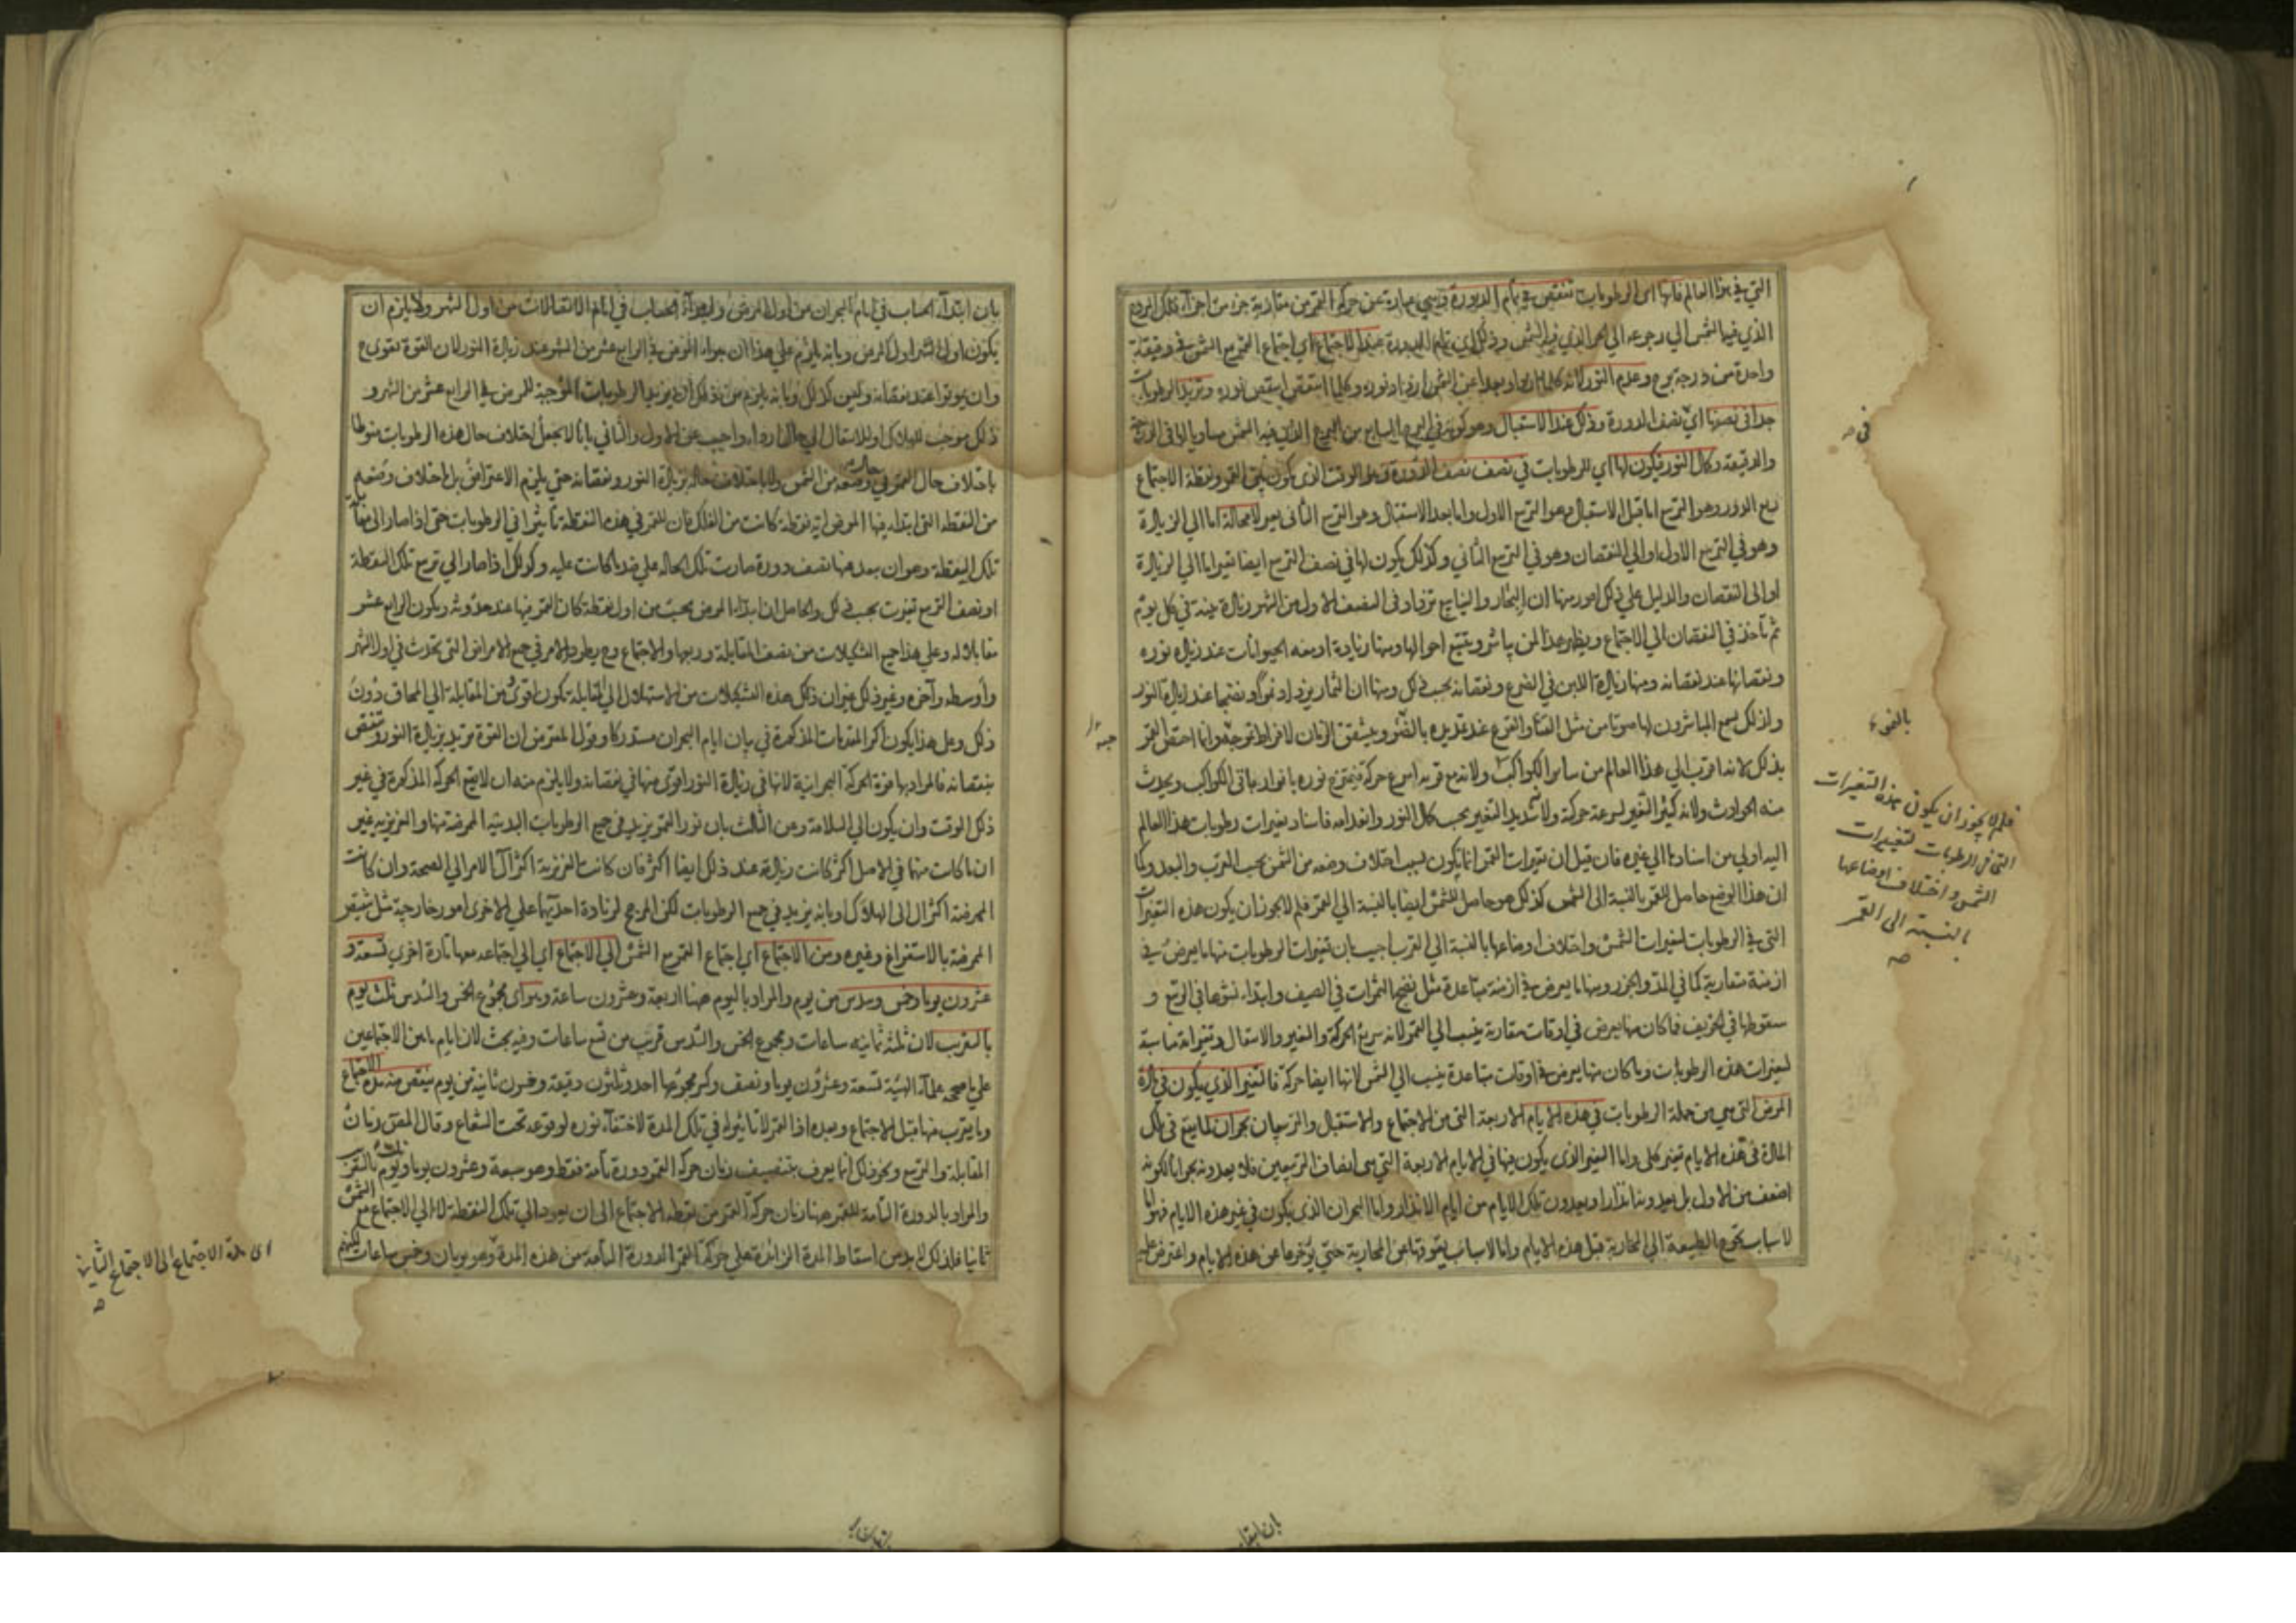 التي في هذا العالم فانها اى الرطوبات تنقص في تمام الدورة وهي عبارة عن حركة القمر من مقارنة جزء من اجزآء فلك البروج
الذي فيها الشمس الي رجوعه الي الجزء الذي فيه الشمس وذلك اي تمام الدورة عند الاجتماع اي اجتماع القمر مع الشمس في دقيقة
واحدة من درجة برج وعدم النور لانه كلما ازداد بعدا عن الشمس ازداد نوره وكلما انتقص انتقص نوره وتزيد الرطوبات
جدا فى نصفها اي نصف الدورة وذلك عند الاستقبال وهو كونه في البرج السابع من البرج الذي فيه الشمس مساويا لها فى الدرجة
والدقيقة وكمال النور فيكون لها اي للرطوبات في نصف نصف الدورة وهو الوقت الذى يكون بين القمر ونقطة الاجتماع
ربع الدور وهو التربيع اما قبل الاستقبال وهو التربيع الاول واما بعد الاستقبال وهو التربيع الثانى تغير لا محالة اما الي الزيادة
وهو في التربيع الاول او الي النقصان وهو في التربيع الثاني وكذلك يكون لها في نصف التربيع ايضا تغير اما الي الزيادة
او الى النقصان والدليل علي ذلك امور منها ان البحار والينابيع تزداد فى النصف الاول من الشهر زيادة بينة في كل يوم
ثم تأخذ في النقصان الي الاجتماع ويظهر هذا لمن يباشر ويتتبع احوالها ومنها زيادة ادمغه الحيوانات عند زيادة نوره
ونقصانها عند نقصانه ومنها زيادة اللبن في الضرع ونقصانه بحسب ذلك ومنها ان الثمار يزداد نموا ونضجا عند زيادة النور
ولذلك يسمع المباشرون لها صوتا من مثل القثاء والقرع عند تمديده بالنمو ويتشقق الرمان لافراط تموجه وانما اختص القمر
بذلك لانه اقرب الي هذا العالم من سائر الكواكب ولانه مع قربه اسرع حركة فيمتزج نوره بانوار باقى الكواكب ويحدث
منه الحوادث ولانه كثير التغير لسرعة حركته ولانه شديد التغير بحسب كمال النور وانعدامه فاسناد تغيرات رطوبات هذا العالم
اليه اولي من اسنادها الي غيره فان قيل ان تغيرات القمر انما يكون بسبب اختلاف وضعه من الشمس بحسب القرب والبعد وكما
ان هذا الوضع حاصل للقمر بالنسبة الى الشمس كذلك هو حاصل للشمس ايضا بالنسبة الي القمر فلم لا يجوز ان يكون هذه التغيرات
التى في الرطوبات لتغيرات الشمس واختلاف اوضاعها بالنسبة الي القمر اجيب بان تغيرات الرطوبات منها ما يعرض في
ازمنة متقاربة كما في المد والجزر ومنها ما يعرض في ازمنة متباعدة مثل نضج الثمرات في الصيف وابتداء نشوها في الربيع و
سقوطها في الخريف فما كان منها يعرض في اوقات متقاربة ينسب الي القمر لانه سريع الحركة والتغير والانتقال وتغيراته مناسبة
لتغيرات هذه الرطوبات وما كان منها يعرض في اوقات متباعدة ينسب الي الشمس لانها ايضا حركة فالتغير الذي يكون في مادة
المرض التي هي من جملة الرطوبات في هذه الايام الاربعة التى هي الاجتماع والاستقبال والتربيعان بحران لما يقع فى تلك
المادة في هذه الايام تغير كلى واما التغير الذى يكون فيها في الايام الاربعة التي هى انصاف التربيعين فلا يعدونه بحرانا لكونه
اضعف من الاول بل يعدونه انذارا ويعدون تلك الايام من ايام الانذار واما البحران الذى يكون في غير هذه الايام فهو اما
لاسباب تحوج الطبيعة الي المحاربة قبل هذه الايام واما لاسباب يعوقها عن المحاربة حتي يؤخرها عن هذه الايام واعترض عليه
في صـ
بالنموء
فلم لا يجوز ان يكون هذه التغيرات
التى فى الرطوبات لتغيرات
الشمس واختلاف اوضاعها
بالنسبة الى القمر
صـ
بان ابتدآء الحساب في ايام البحران من اول المرض وابتدآء الحساب في ايام الانتقالات من اول الشهر ولا يلزم ان
يكون اول الشهر اول المرض وبانه يلزم علي هذا ان يبراء المرضى في الرابع عشر من الشهر عند زيادة النور لان القوة تقوى ح
وان يموتوا عند نقصانه وليس كذلك وبانه يلزم من ذلك ان يزيد الرطوبات الموجبة للمرض في الرابع عشر من الشهر و
ذلك موجب للهلاك او للانتقال الي حال اردء واجيب عن الاول والثاني بانا لا نجعل اختلاف حال هذه الرطوبات منوطا
باختلاف حال القمر في وضعه من الشمس ولا باختلاف حاله بزيادة النور ونقصانه حتي يلزم الاعتراض بل باختلاف وضعه
من النقطه التى ابتداء فيها المرض اية نقطة كانت من الفلك فان للقمر في هذه النقطة تأثيرا في الرطوبات حتى اذا صار الى مقابلة
تلك النقطة وهو ان بعد منها نصف دورة صارت تلك الحاله علي ضد ما كانت عليه وكذلك اذا صار الي تربيع تلك النقطة
او نصف التربيع تغيرت بحسب ذلك والحاصل ان ابتداء المرض يحسب من اول نقطة كان القمر فيها عند حدوثه ويكون الرابع عشر
مقابلا له وعلي هذا جميع التشكيلات من نصف المقابلة وربعها والاجتماع وح يطرد الامر في جميع الامراض التى تحدث في اول الشهر
واوسطه وآخره وغير ذلك غير ان ذلك هذه التشكيلات من الاستهلال الي المقابلة تكون اقوى من المقابلة الي المحاق دون
ذلك وعلى هذا يكون اكثر المقدمات المذكورة في بيان ايام البحران مستدركا وقول المعترض ان القوة تزيد بزيادة النور وتنقص
بنقصانه فالمراد بها قوة الحركة البحرانية لانها في زيادة النور اقوى منها في نقصانه ولا يلزم منه ان لا يقع الحركة المذكورة في غير
ذلك الوقت وان يكون الي السلامة وعن الثالث بان نور القمر يزيد في جميع الرطوبات البدنيه الممرضة منها والغريزيه غير
ان ما كانت منهما في الاصل اكثر كانت زيادته عند ذلك ايضا اكثر فان كانت الغريزية اكثر آل الامر الي الصحة وان كانت
الممرضة اكثر آل الى الهلاك او بانه يزيد في جميع الرطوبات لكن المرجح لزيادة احديهما علي الاخرى امور خارجية مثل تنقيص
الممرضة بالاستفراغ وغيره ومن الاجتماع اي اجتماع القمر مع الشمس الي الاجتماع اي الي اجتماعه معها تارة اخري تسعة و
عشرون يوما وخمس وسدس من يوم والمراد باليوم ههنا اربعة وعشرون ساعة وهو اى مجموع الخمس والسدس ثلث يوم
بالتقريب لان ثلثه ثمانيه ساعات ومجموع الخمس والسدس قريب من تسع ساعات وفيه بحث لان ايام ما بين الاجتماعين
علي ما صححه علمآء الهيئة تسعة وعشرون يوما ونصف وكسر مجموعها احد وثلثون دقيقة وخمسون ثانية من يوم ينقص منه مدة الاجتماع
وما يقرب منها قبل الاجتماع وبعده اذ القمر لا تأثير له في تلك المدة لاختفآء نوره لوقوعه تحت الشعاع وقال المحققون زمان
المقابلة والتربيع ونحو ذلك انما يعرف بتنصيف زمان حركة القمر دورة تامة فقط وهو سبعة وعشرون يوما وثلث يوم بالتقريب
والمراد بالدورة التامة للقمر ههنا زمان حركة القمر من نقطة الاجتماع الى ان يعود الي تلك النقطة لا الي الاجتماع مع الشمس
ثانيا فلذلك لا بد من اسقاط المدة الزائدة علي حركة القمر الدورة التامة من هذه المدة وهو يومان وخمس ساعات لكنهم
اى مدة الاجتماع الى الاجتماع الثانية
صـ